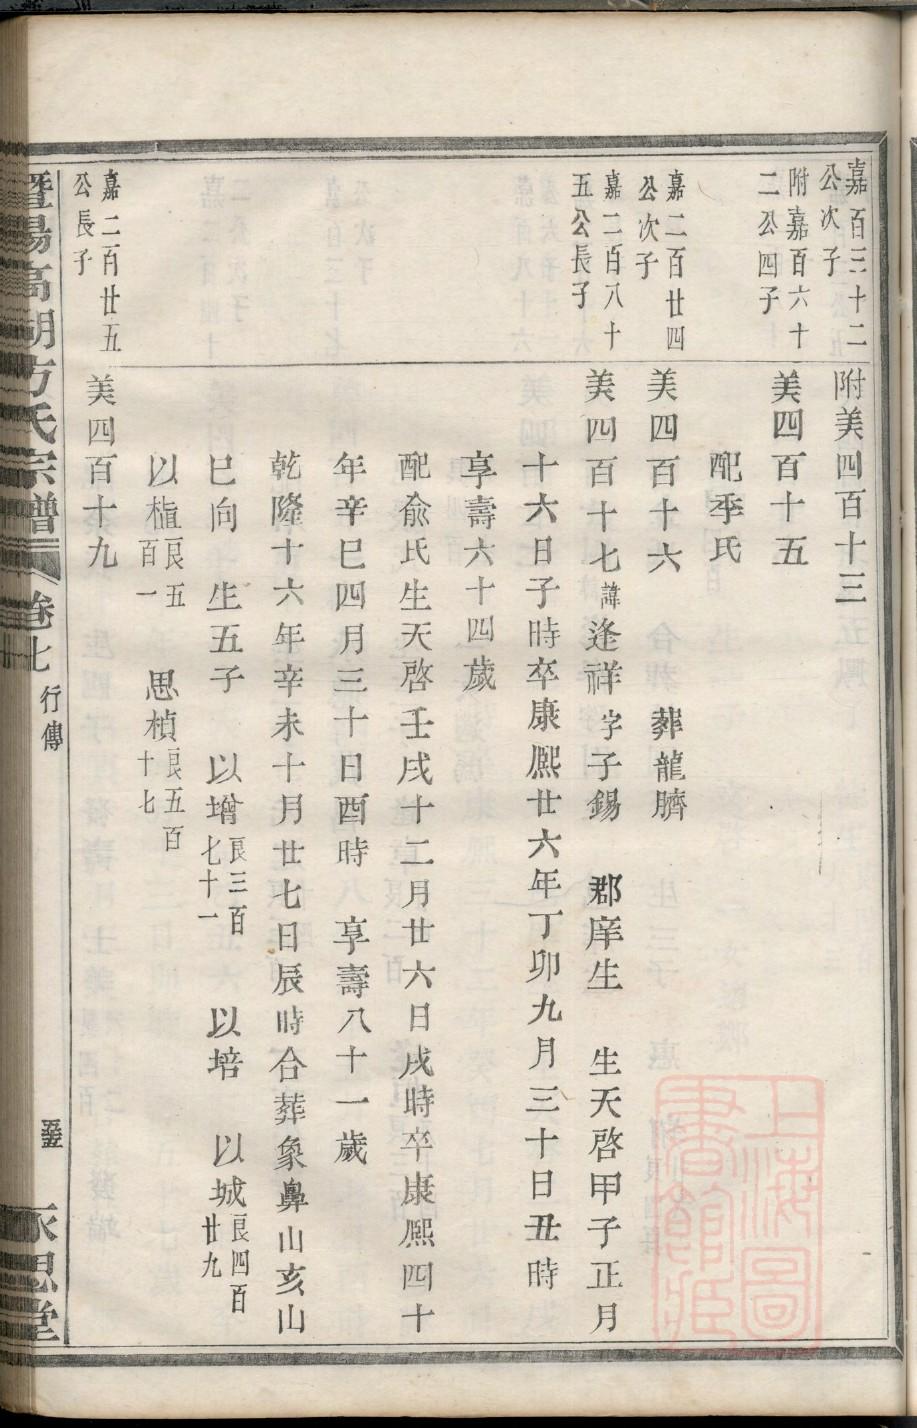 嘉百三十二公次子
附美四百十三
附嘉百六十二公四子
美四百十五
配季氏
嘉二百廿四公次子
美四百十六 葬龍臍
嘉二百八十五公長子
美四百十七諱逢祥字子錫 郡庠生 生天啓甲子正月
十六日子時卒康熙廿六年丁卯九月三十日丑時
享壽六十四歲
配俞氏生天啓壬戌十二月廿六日戌時卒康熙四十
年辛巳四月三十日酉時 享壽八十一歲
乾隆十六年辛未十月廿七日辰時合葬象鼻山亥山
巳向 生五子 以增艮三百七十一 以培 以城艮四百廿九
以植艮五百一 思楨艮五百十七
嘉二百廿五公長子
美四百十九
暨陽高湖方氏宗譜 卷七 行傳 永思堂
上海圖書館藏